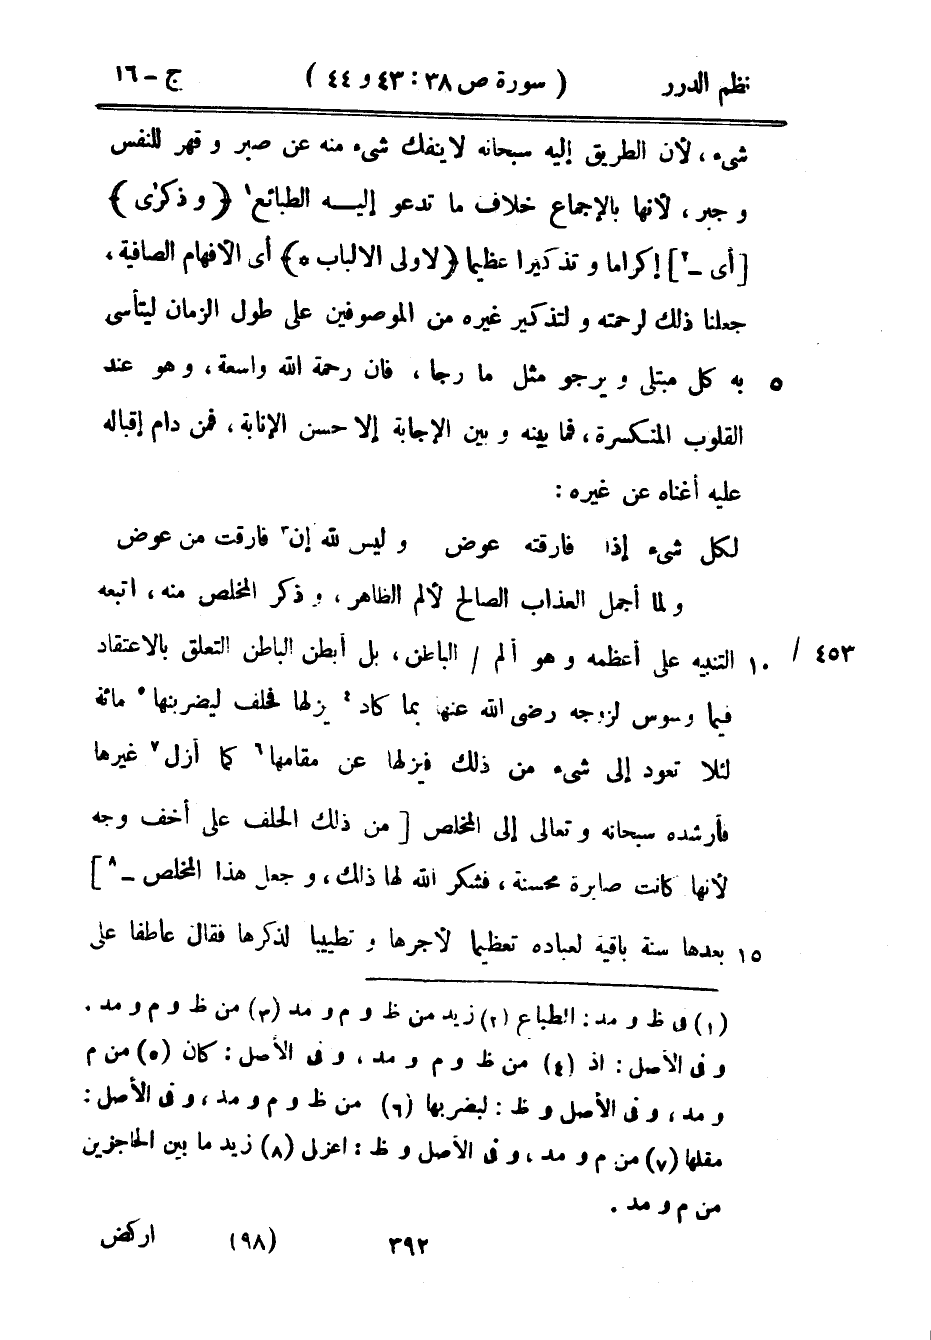 نظم الدرر ( سورة ص ٣٨ : ٤٣ و ٤٤ ) ج – ١٦
شىء ، لأن الطريق إليه سبحانه لا ينفك شىء منه عن صبر و قهر للنفس
و جبر ، لأنها بالإجماع خلاف ما تدعو إليــه الطبائع١ ﴿ و ذكرٰى ﴾
[ أى –٢ ] إكراما و تذكيرا عظيما ﴿ لاولى الالباب ٥ ﴾ أى الأفهام الصافية ،
جعلنا ذلك لرحمته و لتذكير غيره من الموصوفين على طول الزمان ليتأسى
٥ به كل مبتلى و يرجو مثل ما رجا ، فان رحمة الله واسعة ، و هو عند
القلوب المنكسرة ، فما بينه و بين الإجابة إلا حسن الإنابة ، فمن دام إقباله
عليه أغناه عن غيره :
لكل شىء إذا فارقته عوض و ليس لله إن٣ فارقت من عوض
و لما أجمل العذاب الصالح لألم الظاهر ، و ذكر المخلص منه ، اتبعه
٤٥٣ / ١٠ التنبيه على أعظمه و هو ألم / الباطن ، بل أبطن الباطن التعلق بالاعتقاد
فيما وسوس لزوجه رضى الله عنها بما كاد٤ يزلها فحلف ليضربنها٥ مائة
لئلا تعود إلى شىء من ذلك فيزلها عن مقامها٦ كما أزل٧ غيرها
فأرشده سبحانه و تعالى إلى المخلص [ من ذلك الحلف على أخف وجه
لأنها كانت صابرة محسنة ، فشكر الله لها ذلك ، و جعل هذا المخلص –٨ ]
١٥ بعدها سنة باقية لعباده تعظيما لأجرها و تطييبا لذكرها فقال عاطفا على
(١) فى ظ و مد : الطباع (٢) زيد من ظ و م و مد (٣) من ظ و م و مد .
و فى الأصل : اذ (٤) من ظ و م و مد ، و فى الأصل : كان (٥) من م
و مد ، و فى الأصل و ظ : ليضربها (٦) من ظ و م و مد ، و فى الأصل :
مقلها (٧) من م و مد ، و فى الأصل و ظ : اعزلى (٨) زيد ما بين الحاجزين
من م و مد .
٣٩٢ (٩٨) اركض